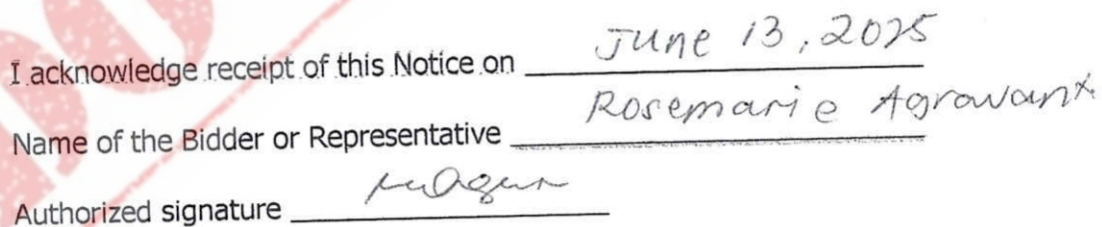 I acknowledge receipt of this Notice on June 13, 2025
Name of the Bidder or Representative Rosemarie Agravant
Authorized signature